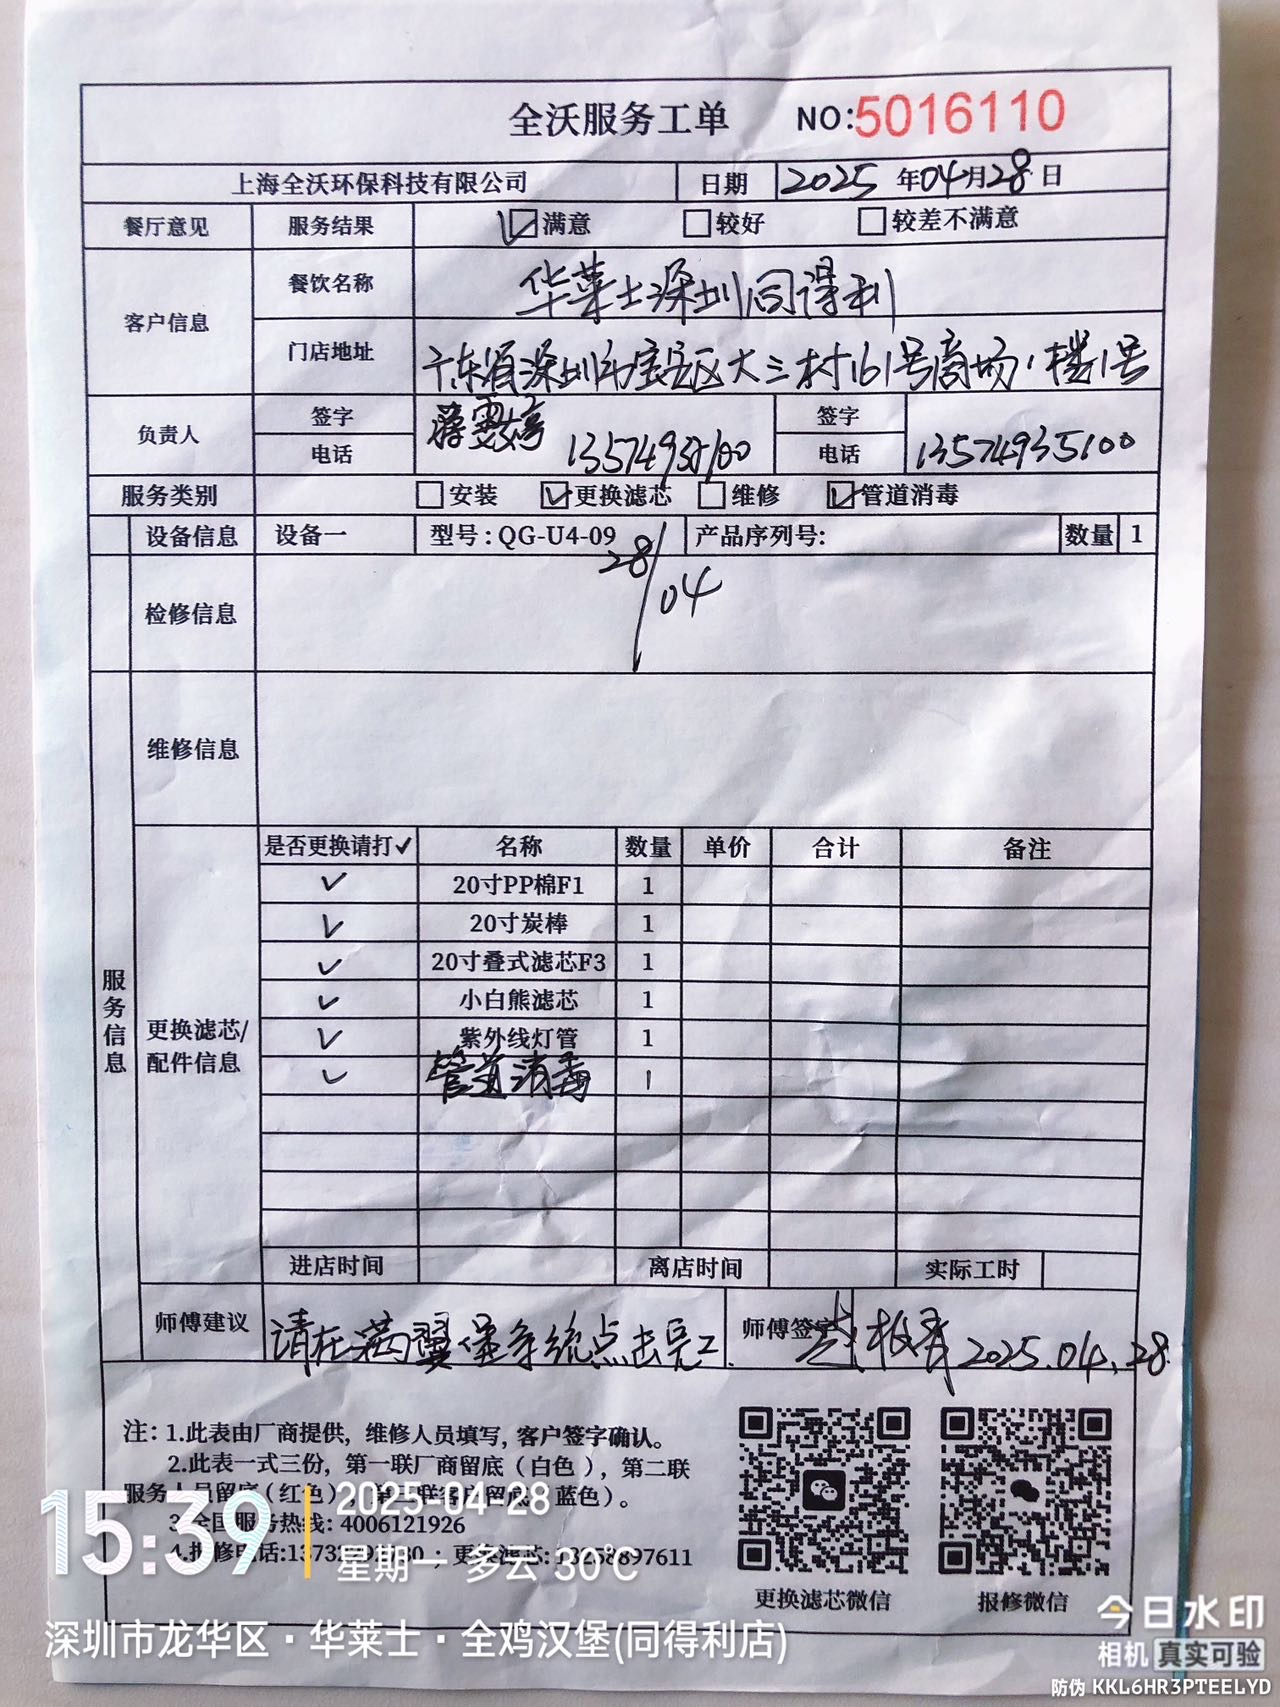 全沃服务工单 NO:5016110
上海全沃环保科技有限公司 日期 2025年04月28日
餐厅意见 服务结果 满意 较好 较差不满意
客户信息 餐饮名称 华莱士深圳同得利
门店地址 广东省深圳市宝安区大三村161号商场1楼1号
负责人 签字 签字
电话 13574935100 电话 13574935100
服务类别 安装 ✓更换滤芯 维修 ✓管道消毒
设备信息 设备一 型号:QG-U4-09 产品序列号: 数量 1
28/04
检修信息
维修信息
服务信息
更换滤芯/配件信息
是否更换请打✓ 名称 数量 单价 合计 备注
✓ 20寸PP棉F1 1
✓ 20寸炭棒 1
✓ 20寸叠式滤芯F3 1
✓ 小白熊滤芯 1
✓ 紫外线灯管 1
✓ 管道消毒 1
进店时间 离店时间 实际工时
师傅建议 请在满翼堡系统点击完工. 师傅签字 2025.04.28
注:1.此表由厂商提供,维修人员填写,客户签字确认。
2.此表一式三份,第一联厂商留底(白色),第二联
服务人员留底(红色) 联客户留底(蓝色)。
3.全国服务热线:4006121926
4.报修电话: ;更换滤芯:
更换滤芯微信 报修微信
15:39 2025-04-28
星期一 多云 30℃
深圳市龙华区·华莱士·全鸡汉堡(同得利店)
今日水印
相机 真实可验
防伪 KKL6HR3PTEELYD